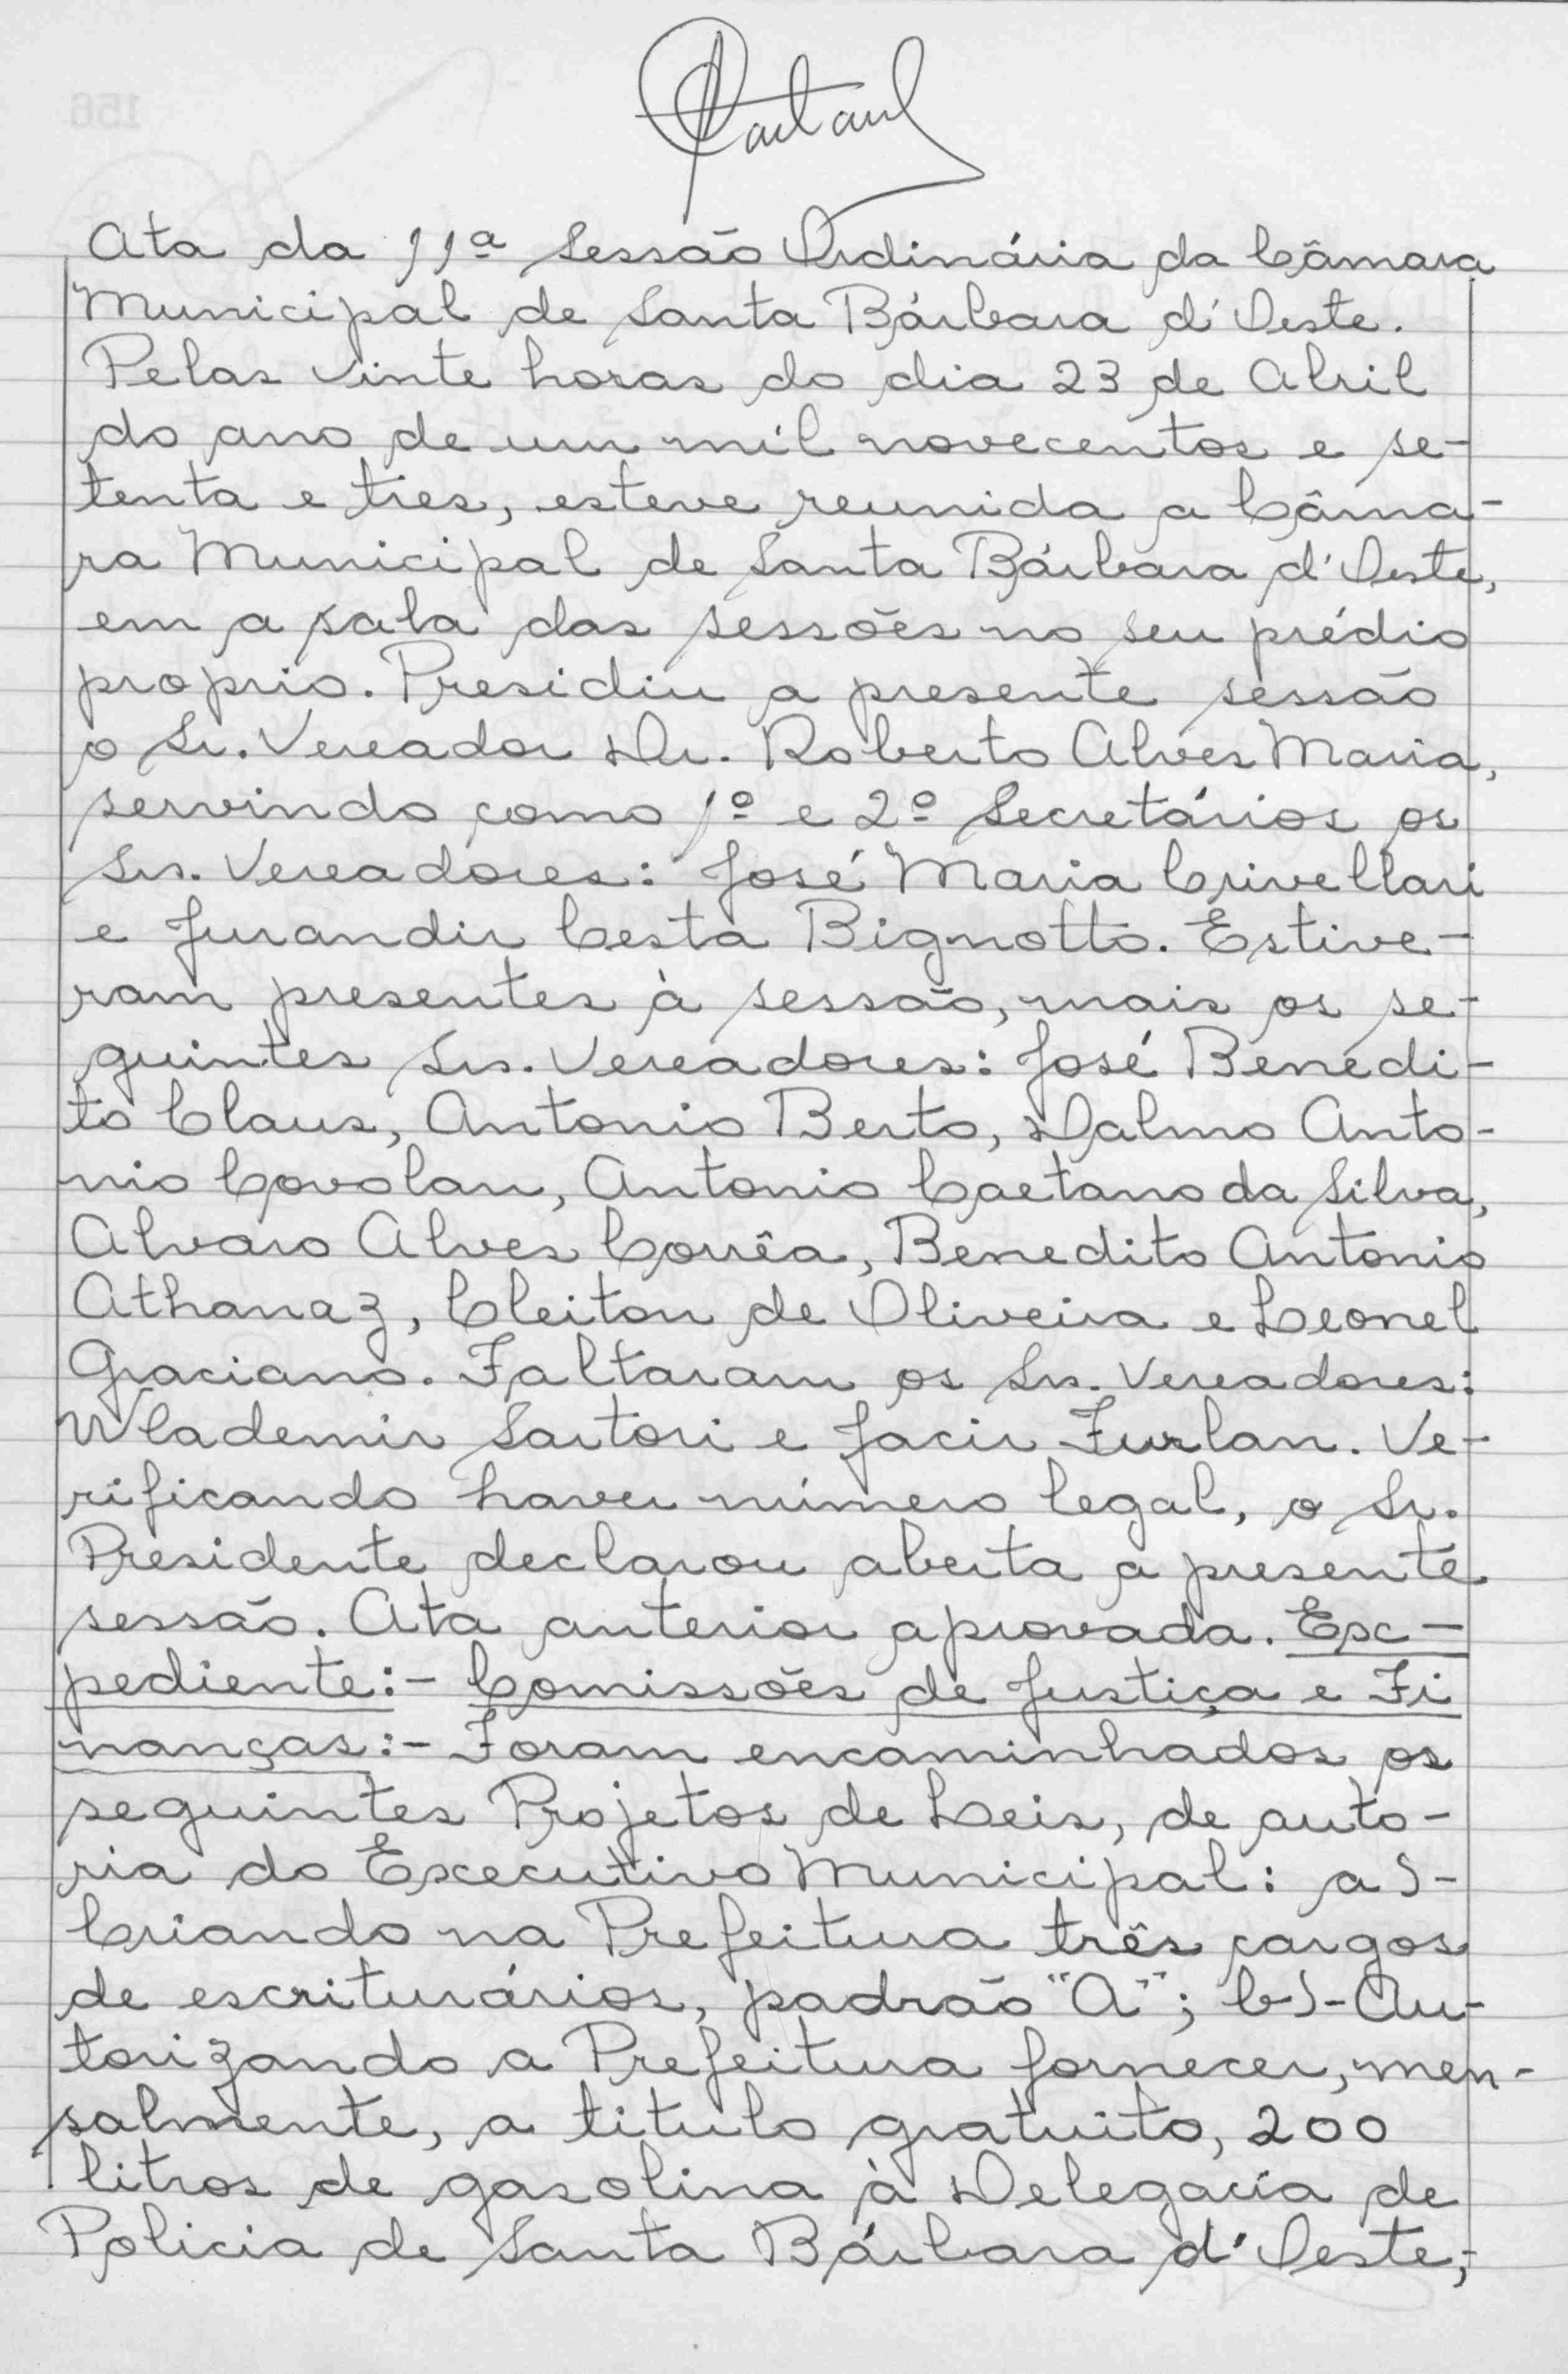 Ata da 11ª Sessão Ordinária da Câmara
Municipal de Santa Bárbara d'Oeste.
Pelas vinte horas do dia 23 de Abril
do ano de um mil novecentos e se-
tenta e tres, esteve reunida a Câma-
ra Municipal de Santa Bárbara d'Oeste,
em a sala das sessões no seu prédio
proprio. Presidiu a presente sessão
o Sr. Vereador Dr. Roberto Alves Maria,
servindo como 1º e 2º Secretários os
Srs. Vereadores: José Maria Crivellari
e Jurandir Cesta Bignotto. Estive-
ram presentes à sessão, mais os se-
guintes Srs. Vereadores: José Benedi-
to Claus, Antonio Berto, Dalmo Anto-
nio Covolan, Antonio Caetano da Silva,
Alvaro Alves Corrêa, Benedito Antonio
Athanaz, Cleiton de Oliveira e Leonel
Graciano. Faltaram os Srs. Vereadores:
Wlademir Sartori e Jacir Furlan. Ve-
rificando haver número legal, o Sr.
Presidente declarou aberta a presente
sessão. Ata anterior aprovada. Ex-
pediente:- Comissões de Justiça e Fi
nanças:- Foram encaminhados os
seguintes Projetos de Leis, de auto-
ria do Executivo Municipal: a)-
Criando na Prefeitura três cargos
de escriturários, padrão "A"; b)-Au-
torizando a Prefeitura fornecer, men-
salmente, a titulo gratuito, 200
litros de gasolina à Delegacia de
Policia de Santa Bárbara d'Oeste;